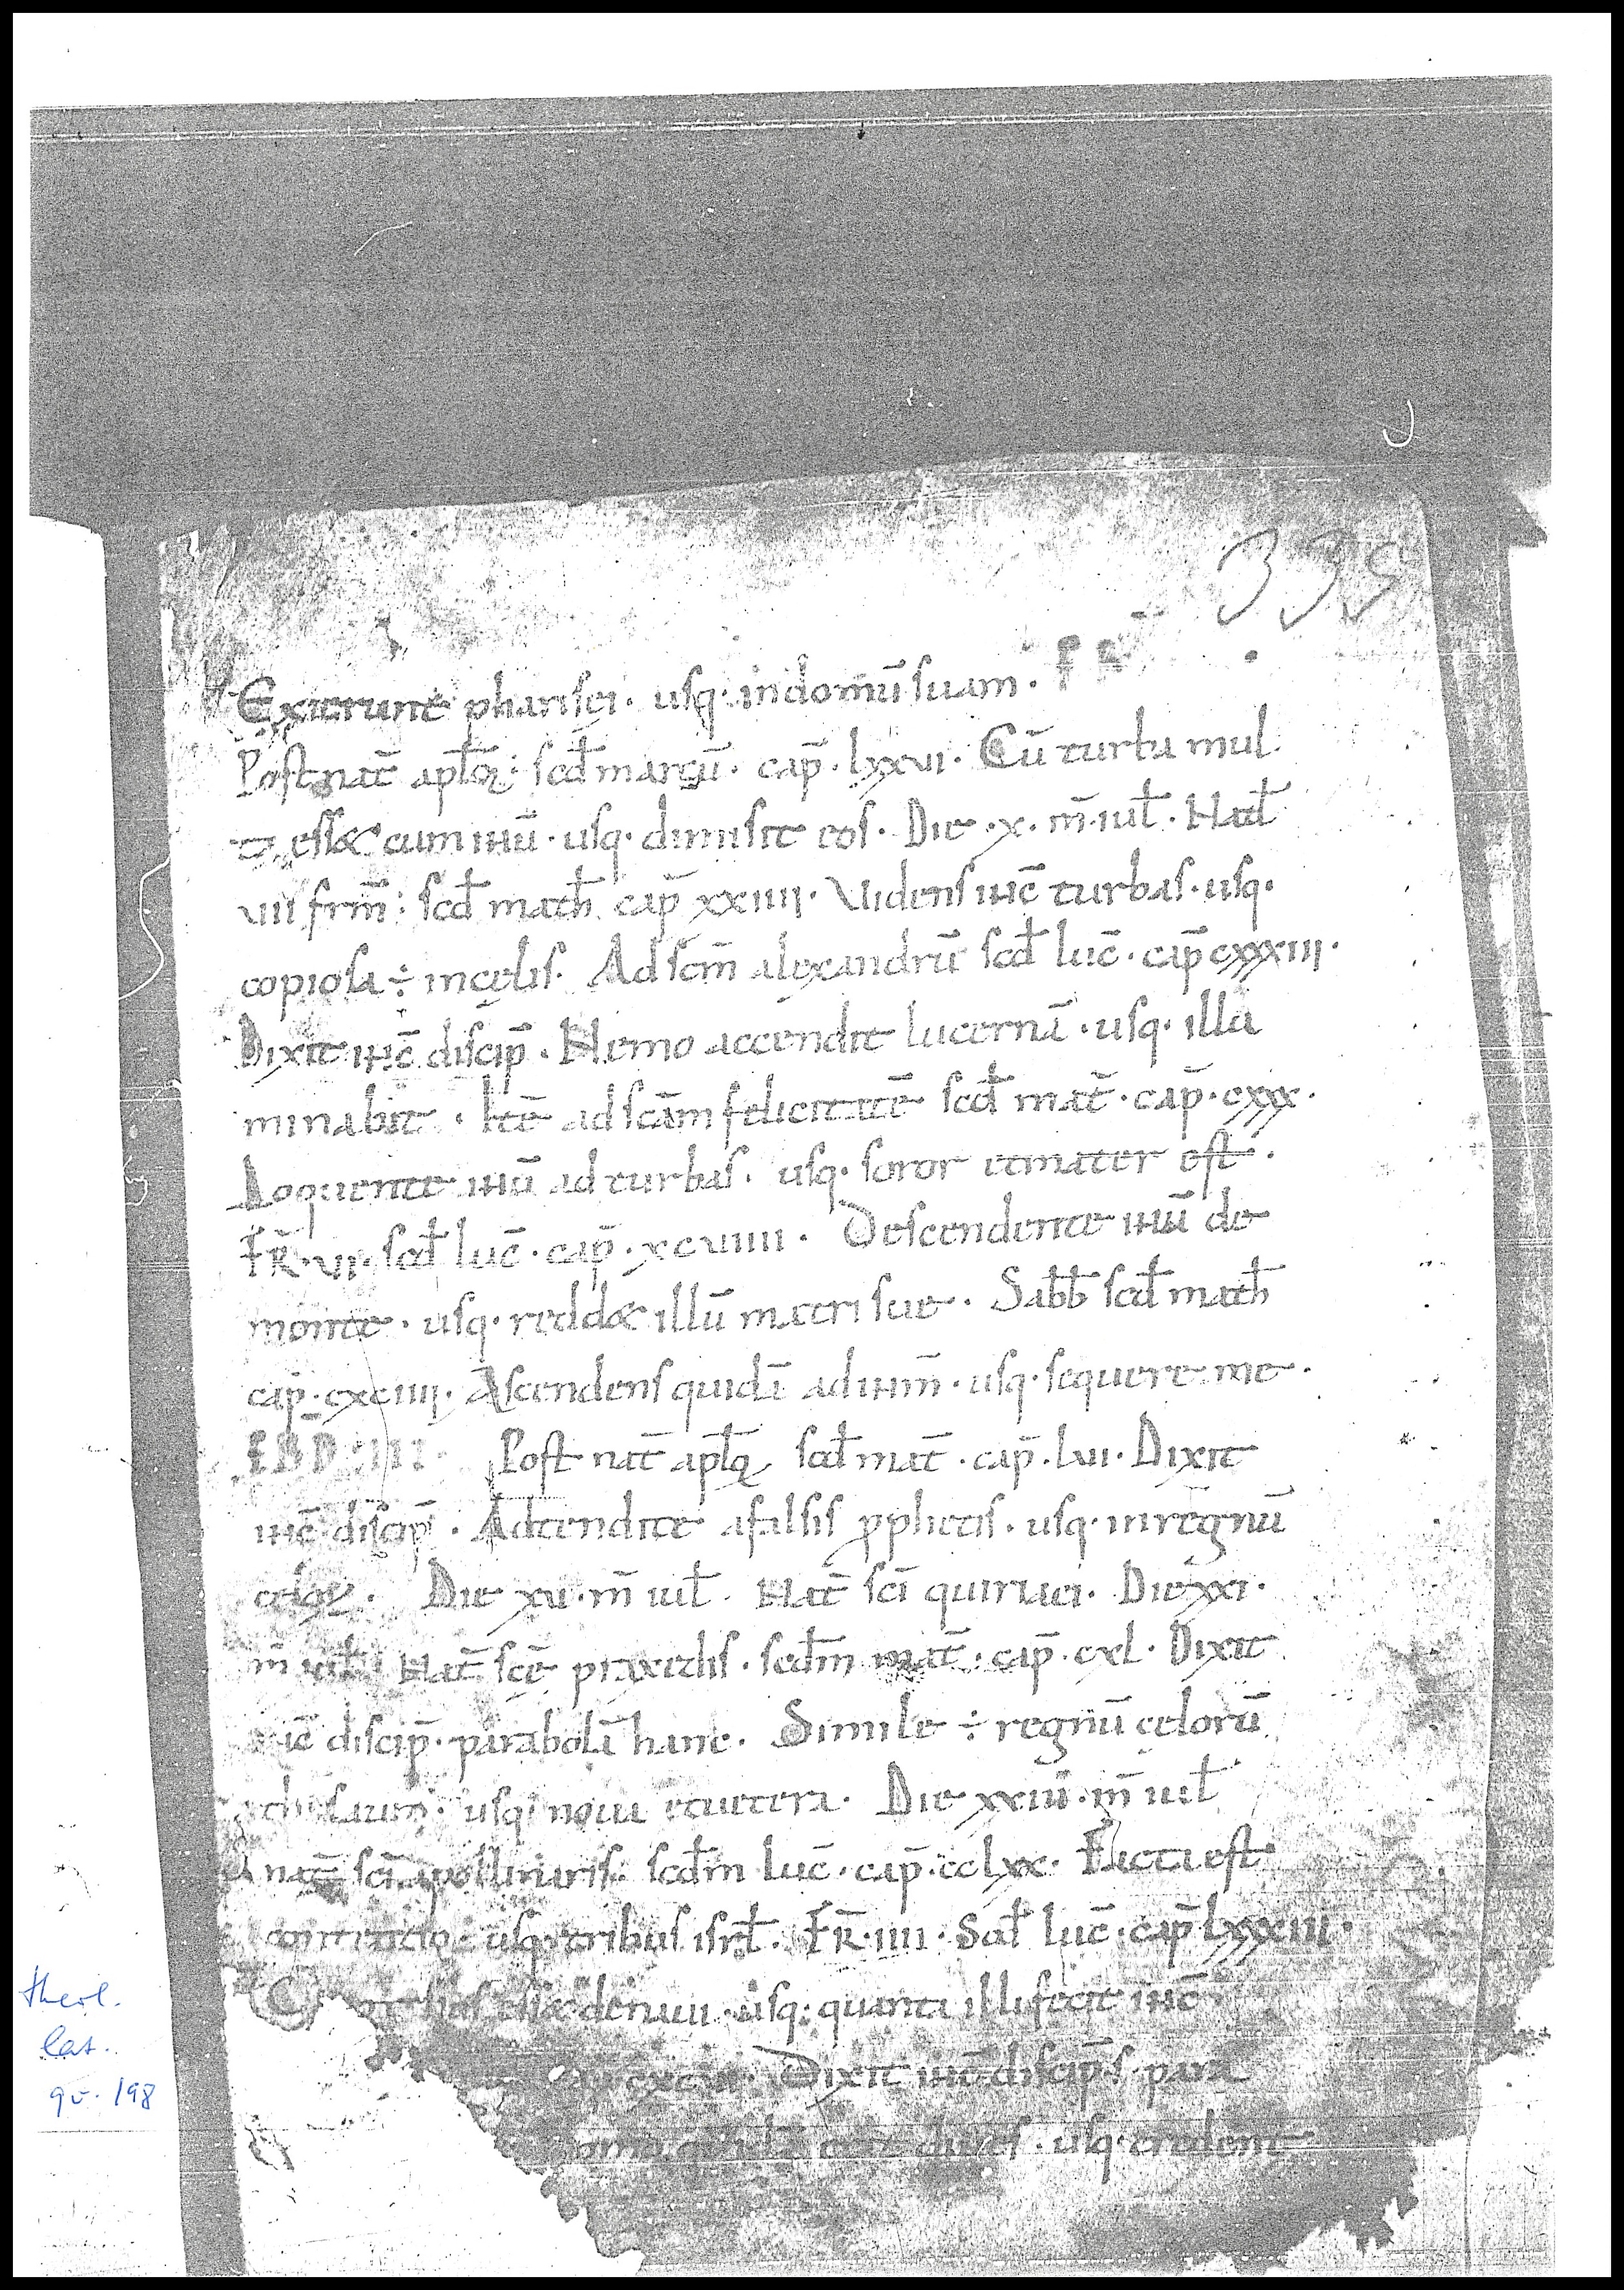 335
Exierunt pharisei · usq · indomū suam ·
Post nat̄ aplōꝝ · scd̄ marcū · cap̄ · lxxvi · Cū turba mul
ta eēt cum ihū · usq · dimisit eos · Die · x · m̄ · iul̄ · Natl̄
vii frm̄ : scd̄ math̄ cap̄ xxiiii · Videns ihc̄ turbas · usq ·
copiosa ÷ incęlis · Ad scm̄ alexandrū scd̄ luc̄ · cap̄ cxxxiii ·
Dixit ihc̄ discip̄ · Nemo accendit lucernā · usq · illu
minabit · Itē ad scām felicitatē scd̄ mat̄ · cap̄ · cxxx ·
Loquente ihū ad turbas · usq · soror etmater est ·
FR̄ · vi · scd̄ luc̄ · cap̄ · xcviiii · Descendente ihū de
monte · usq · redd& illū matri sue · Sabb̄ scd̄ math̄
cap̄ · cxciiii · Ascendens quidā ad ihm̄ · usq · sequere me ·
EBD · III · Post nat̄ aplōꝝ scd̄ mat̄ · cap̄ · lvii · Dixit
ihc̄ discip̄ · Adtendite afalsis ꝓphetis · usq · inregnū
celoꝝ · Die xv · m̄ iul̄ · Nat̄ scī quiriaci · Die xxi ·
m̄ iul̄ · Nat̄ scē praxedis · scdm̄ mat̄ · cap̄ · cxl · Dixit
ihc̄ discip̄ · parabolā hanc · Simile ÷ regnū cęlorū
thesauro · usq · noua etuetera · Die xxiii · m̄ iul̄
nat̄ scī apollinaris · scdm̄ luc̄ · cap̄ · cclxx · Facta est
contentio · usq · tribus isrl̄ · FR̄ · iiii · Scd̄ luc̄ · cap̄ lxxxiii ·
denaui · usq · quanta illi fecit ihc̄
Dixit ihc̄ discip̄s para
homo quidā erat diues · usq · credent
theol.
lat.
qu. 198